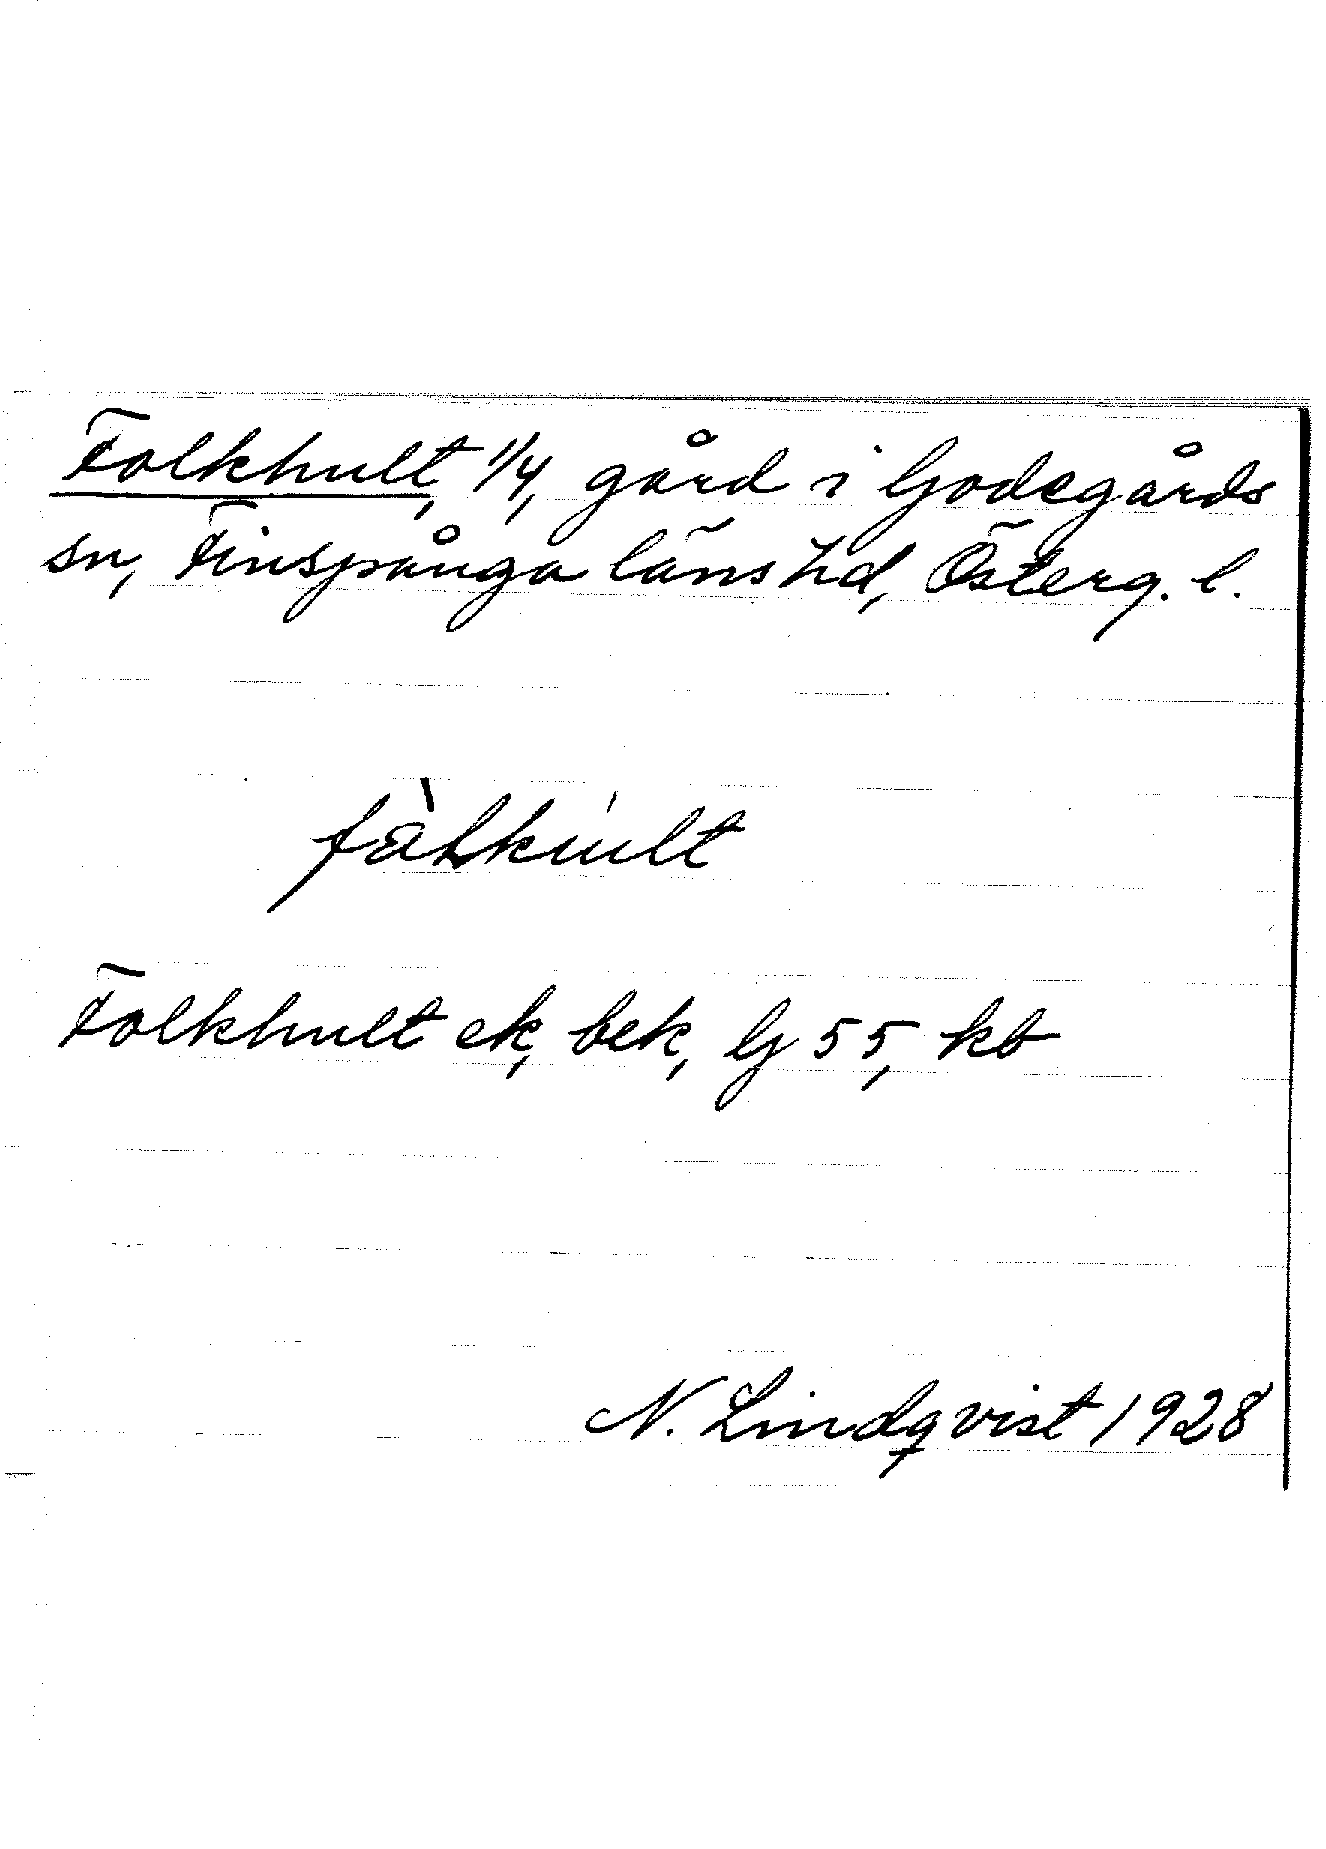 Folkhult, 1/4, gård i Godegårds
sn, Finspånga läns hd, Österg. l.
Folkhult ek, bek, G 55, kb
N. Lindqvist 1928